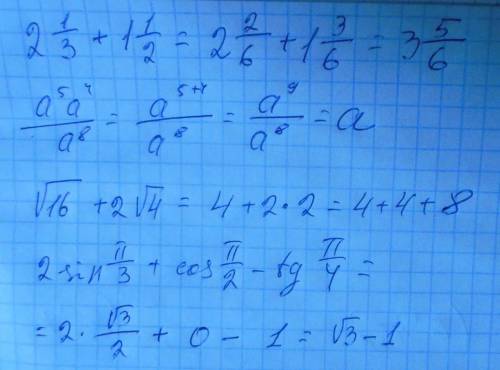 2 1/3 + 1 1/2 = 2 2/6 + 1 3/6 = 3 5/6
a⁵a⁴/a⁸ = a⁵⁺⁴/a⁸ = a⁹/a⁸ = a
√16 + 2√4 = 4 + 2·2 = 4+4+8
2 sin π/3 + cos π/2 - tg π/4 =
= 2 · √3/2 + 0 - 1 = √3 - 1